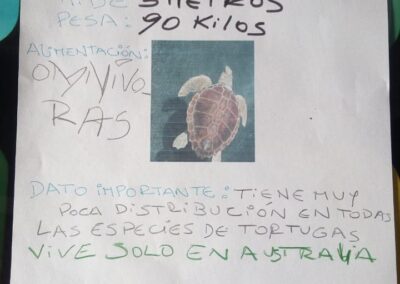 MiDE 3 METROS
PESA: 90 KiLOS
ALIMENTACIÓN:
OMNÍVO-
RAS
DATO iMPORTANTE: TIENE MUY
POCA DISTRIBUCIÓN EN TODAS
LAS ESPECIES DE TORTUGAS
ViVE SOLO EN AUSTRALiA